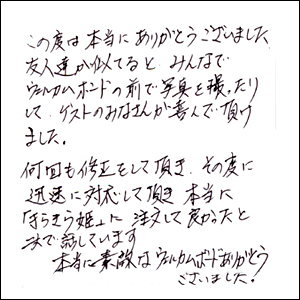 この度は本当にありがとうございました
友人達が似てると、みんなで
ウェルカムボードの前で写真を撮ったり
して、ゲストのみなさんが喜んで頂け
ました。
何回も修正をして頂き、その度に
迅速に対応して頂き 本当に
「きらきら姫」に 注文して良かったと
2人で話しています
本当に素敵なウェルカムボードありがとう
ございました!